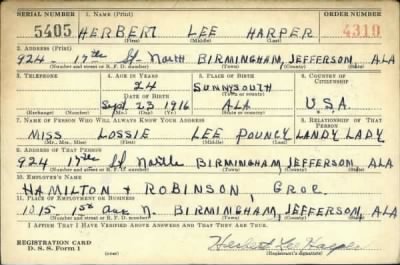 SERIAL NUMBER 1. NAME (Print) ORDER NUMBER
5405 HERBERT LEE HARPER 4310
(First) (Middle) (Last)
2. ADDRESS (Print)
924 - 17th St North BIRMINGHAM, JEFFERSON, ALA
(Number and street or R. F. D. number) (Town) (County) (State)
3. TELEPHONE 4. AGE IN YEARS 5. PLACE OF BIRTH 6. COUNTRY OF CITIZENSHIP
24 SUNNYSOUTH
DATE OF BIRTH (Town or county)
Sept 23 1916 ALA U.S.A.
(Exchange) (Number) (Mo.) (Day) (Yr.) (State or country)
7. NAME OF PERSON WHO WILL ALWAYS KNOW YOUR ADDRESS 8. RELATIONSHIP OF THAT PERSON
MISS LOSSIE LEE POUNCY LANDY LADY
(Mr., Mrs., Miss) (First) (Middle) (Last)
9. ADDRESS OF THAT PERSON
924 17th St North BIRMINGHAM, JEFFERSON, ALA
(Number and street or R. F. D. number) (Town) (County) (State)
10. EMPLOYER'S NAME
HAMILTON + ROBINSON, GROC.
11. PLACE OF EMPLOYMENT OR BUSINESS
1015 1st Ave N. BIRMINGHAM, JEFFERSON, ALA
(Number and street or R. F. D. number) (Town) (County) (State)
I AFFIRM THAT I HAVE VERIFIED ABOVE ANSWERS AND THAT THEY ARE TRUE.
REGISTRATION CARD
D. S. S. Form 1 Herbert Lee Harper
(Registrant's signature)